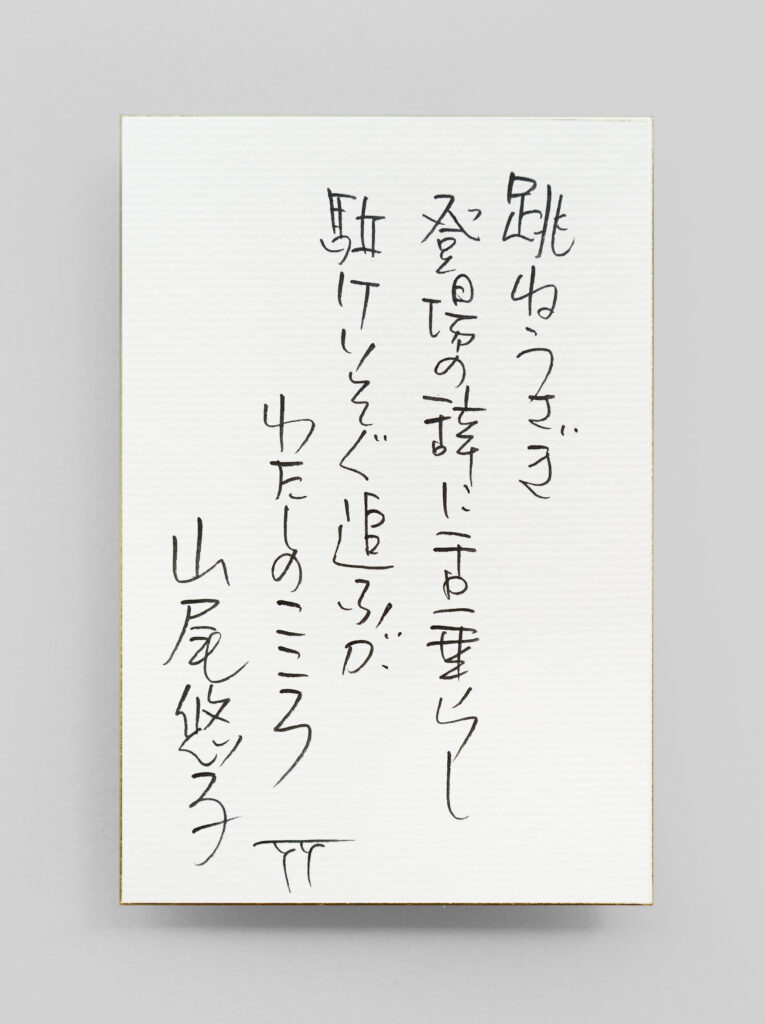 跳ねうさぎ
登場の辞に言葉らし
駈けいそぐ追ふが
わたしのこころ
山尾悠子